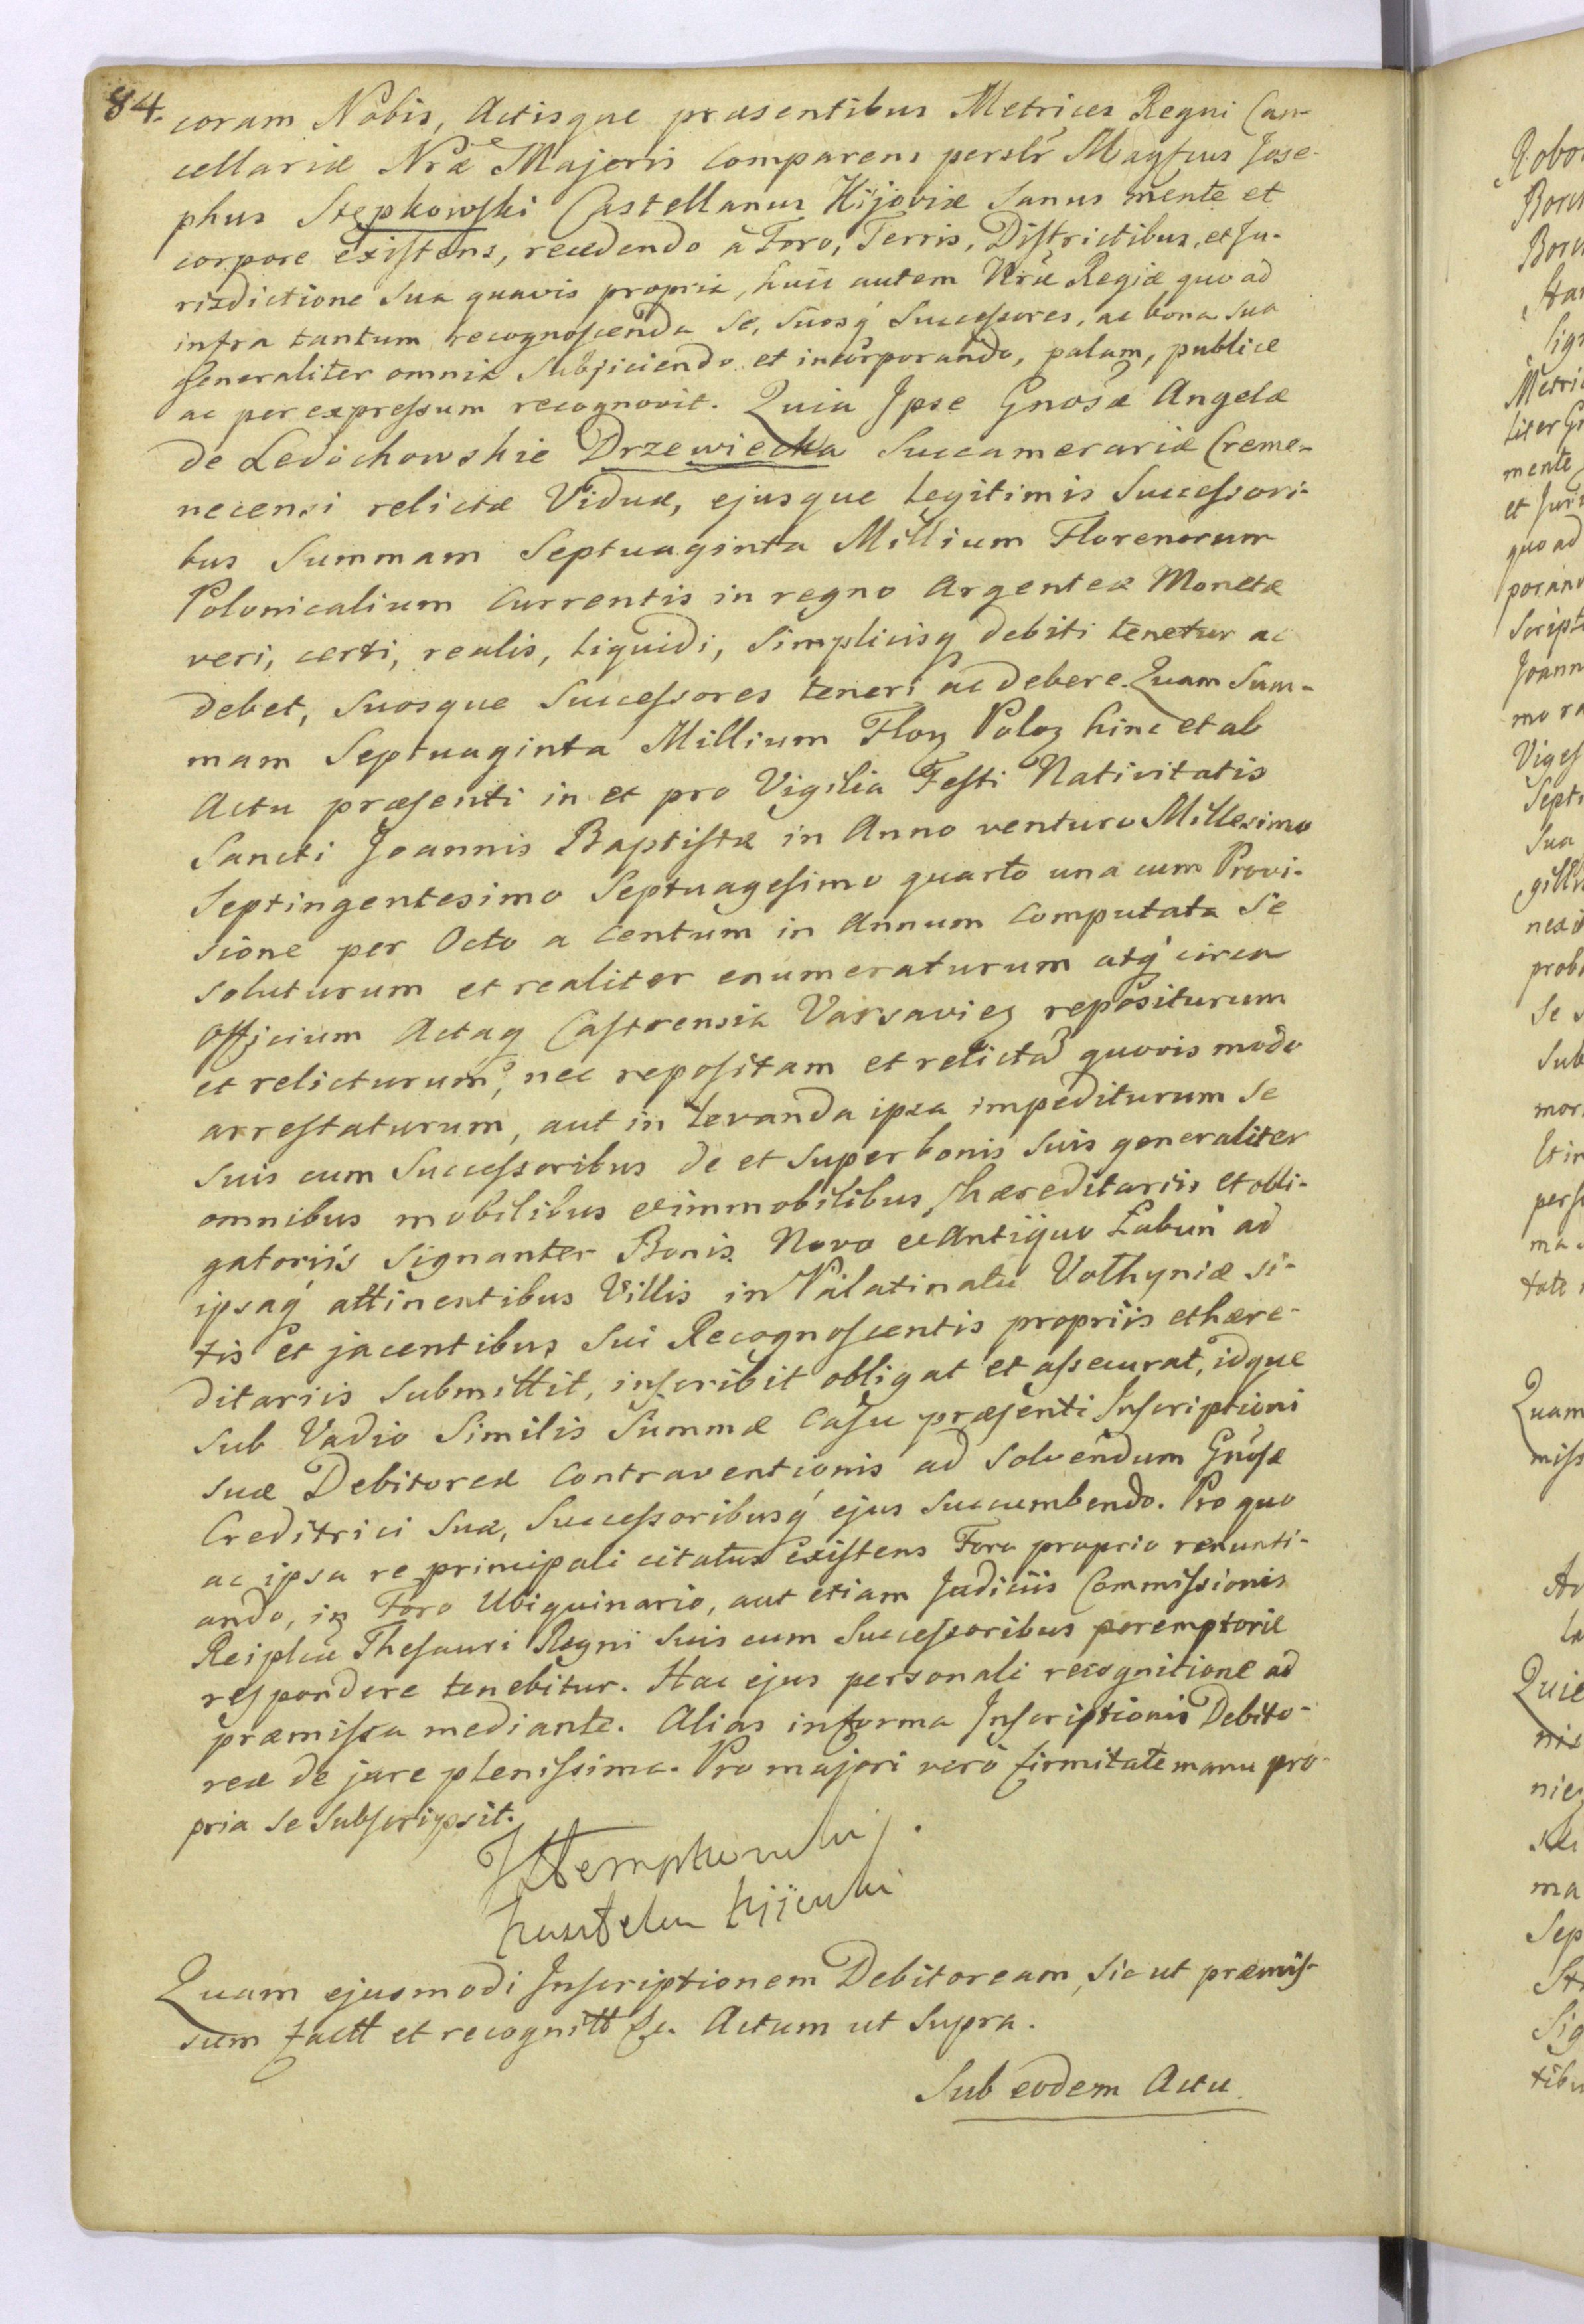 84.
coram Nobis, Actisque præsentibus Metrices Regni Can-
cellariæ Nræ Majoris Comparens persلr Magfcus Jose-
phus Stępkowski Castellanus Kijoviæ Sanus mente et
corpore existens, recedendo à Foro, Terris, Districtibus, et Ju-
risdictione Sua quavis propria, huic autem Nræ Regiæ quo ad
infra tantum recognoscenda Se, Suosq́ Successores, ac bona Sua
generaliter omnia Subjiciendo et incorporando, palam, publice
ac per expressum recognovit. Quia Ipse Gnosæ Angelæ
de Ledóchowskie Drzewiecka Succamerariæ Creme-
necensi relictæ Viduæ, ejusque legitimis Successori-
bus Summam Septuaginta Millium Florenorum
Polonicalium Currentis in regno Argenteæ Monetæ
veri, certi, realis, liquidi, Simplicisq debiti tenetur ac
debet, Suosque Successores teneri ac debere. Quam Sum-
mam Septuaginta Millium Floꝝ Poloꝝ hinc et ab
Actu præsenti in et pro Vigilia Festi Nativitatis
Sancti Joannis Baptistæ in Anno venturo Millesimo
Septingentesimo Septuagesimo quarto una cum Provi-
sione per Octo a Centum in Annum Computata Se
soluturum et realiter enumeraturum atq́ circa
Officium Actaq Castrensia Varsavieꝝ repositurum
et relicturum, nec repositam et relictā quovis modo
arrestaturum, aut in Levanda ipsa impediturum Se
suis cum Successoribus de et Super bonis Suis generaliter
omnibus mobilibus et immobilibus hæreditariis et obli-
gatoriis Signanter Bonis Novo et Antiquo Łabuń ad
ipsaq́ attinentibus Villis in Palatinatu Volhyniæ si-
tis et jacentibus Sui Recognoscentis propriis et hære-
ditariis Submittit, inscribit obligat et assecurat, idque
sub Vadio Similis Summæ Casu præsenti Inscriptioni
suæ Debitoreæ Contraventionis ad Solvendum Gnosæ
Creditrici Suæ, Successoribusq́ ejus Succumbendo. Pro quo
ac ipsa re principali citatus existens Foro proprio renunti-
ando, in Foro Ubiquinario, aut etiam Judiciis Commissionis
Reiplcæ Thesauri Regni Suis cum Successoribus peremptorie
respondere tenebitur. Hac ejus personali recognitione ad
præmissa mediante. Alias in forma Inscriptionis Debito-
reæ de jure plenissima. Pro majori vero firmitate manu pro-
pria Se Subscripsit.
JStempkowski
kasztelan kijiowski
Quam ejusmodi Inscriptionem Debitoream, Sic ut præmis-
sum factt et recognitt Sc. Actum ut Supra.
Sub eodem Actu